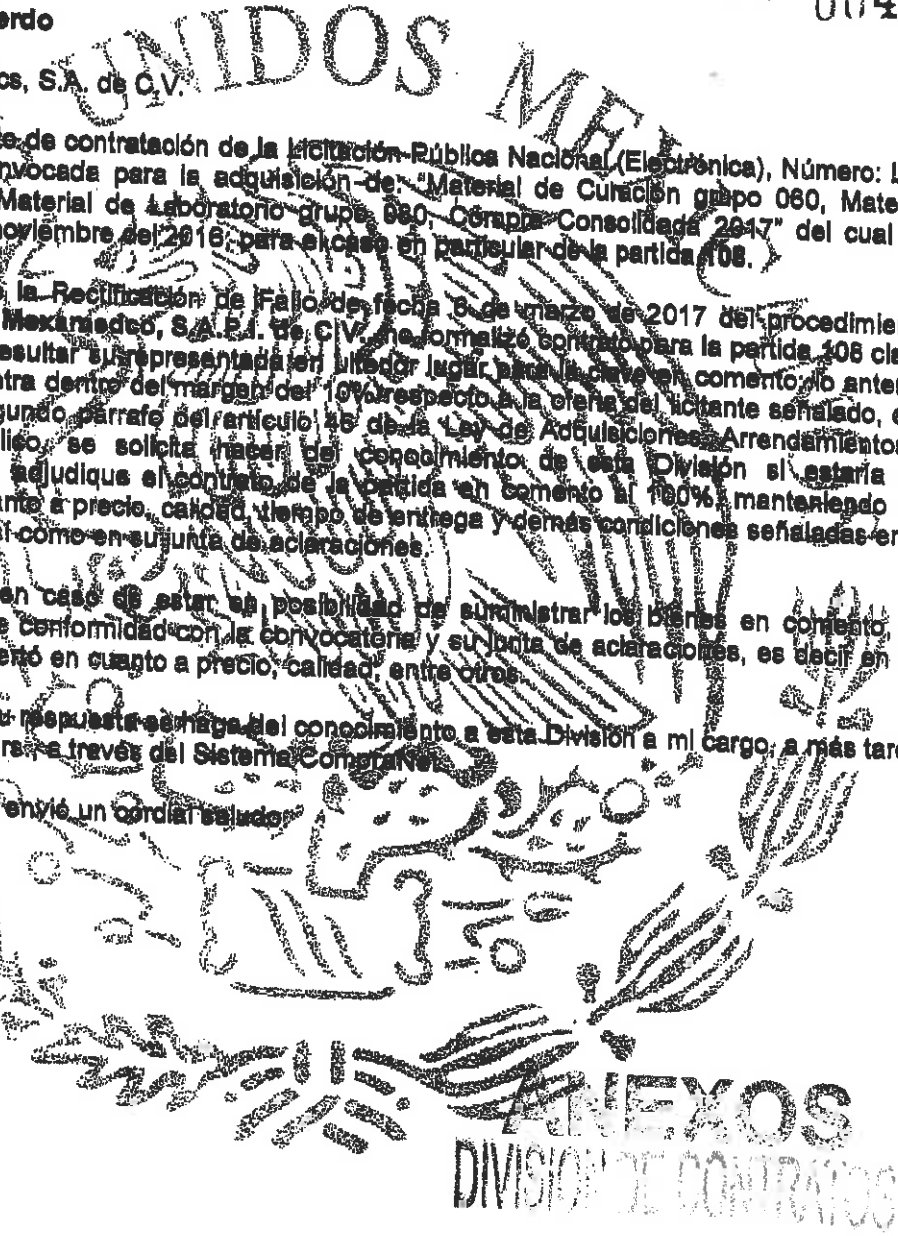 erdo
UNIDOS ME
cs, S.A. de C.V.
te de contratación de la Licitación Pública Nacional (Electrónica), Número: L
nvocada para la adquisición de: "Material de Curación grupo 060, Mate
Material de Laboratorio grupo 080, Compra Consolidada 2017" del cual
noviembre del 2016, para el caso en particular de la partida 108.
la Rectificación de Fallo de fecha 6 de marzo de 2017 del procedimien
Mexamedco, S.A.P.I. de C.V. no formalizó contrato para la partida 108 cla
esultar su representada en ulterior lugar para la clave en comento, lo anter
ntra dentro del margen del 10% respecto a la oferta del licitante señalado, e
gundo párrafo del artículo 46 de la Ley de Adquisiciones, Arrendamientos
lico, se solicita hacer del conocimiento de esta División si estaría
adjudique el contrato de la partida en comento al 100% manteniendo
anto a precio, calidad, tiempo de entrega y demás condiciones señaladas en
sí como en su junta de aclaraciones.
en caso de estar en posibilidad de suministrar los bienes en comento,
e conformidad con la convocatoria y su junta de aclaraciones, es decir en
ertó en cuanto a precio, calidad, entre otros.
u respuesta se haga del conocimiento a esta División a mi cargo, a más tard
rs. a través del Sistema CompraNet.
envió un cordial saludo
ANEXOS
DIVISION DE CONTRATOS